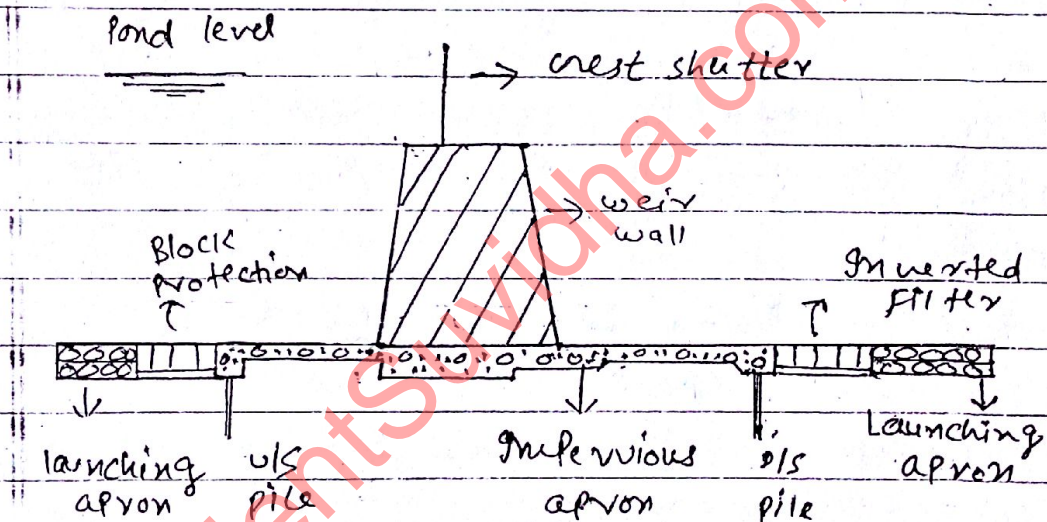 Pond level
crest shutter
weir
wall
Block
protection
Inverted
Filter
launching
apron
u/s
pile
Impervious
apron
D/s
pile
Launching
apron
entSuvidha.com